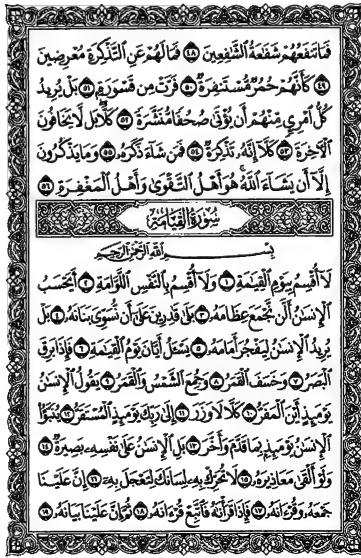 فَمَا تَنفَعُهُمْ شَفَٰعَةُ ٱلشَّٰفِعِينَ ٤٨ فَمَا لَهُمْ عَنِ ٱلتَّذْكِرَةِ مُعْرِضِينَ
٤٩ كَأَنَّهُمْ حُمُرٌ مُّسْتَنفِرَةٌ ٥٠ فَرَّتْ مِن قَسْوَرَةٍۭ ٥١ بَلْ يُرِيدُ
كُلُّ ٱمْرِئٍ مِّنْهُمْ أَن يُؤْتَىٰ صُحُفًا مُّنَشَّرَةً ٥٢ كَلَّا بَل لَّا يَخَافُونَ
ٱلْءَاخِرَةَ ٥٣ كَلَّآ إِنَّهُۥ تَذْكِرَةٌ ٥٤ فَمَن شَآءَ ذَكَرَهُۥ ٥٥ وَمَا يَذْكُرُونَ
إِلَّآ أَن يَشَآءَ ٱللَّهُ هُوَ أَهْلُ ٱلتَّقْوَىٰ وَأَهْلُ ٱلْمَغْفِرَةِ ٥٦
سُورَةُ القِيَامَةِ
بِسْمِ ٱللَّهِ ٱلرَّحْمَٰنِ ٱلرَّحِيمِ
لَآ أُقْسِمُ بِيَوْمِ ٱلْقِيَٰمَةِ ١ وَلَآ أُقْسِمُ بِٱلنَّفْسِ ٱللَّوَّامَةِ ٢ أَيَحْسَبُ
ٱلْإِنسَٰنُ أَلَّن نَّجْمَعَ عِظَامَهُۥ ٣ بَلَىٰ قَٰدِرِينَ عَلَىٰٓ أَن نُّسَوِّىَ بَنَانَهُۥ ٤ بَلْ
يُرِيدُ ٱلْإِنسَٰنُ لِيَفْجُرَ أَمَامَهُۥ ٥ يَسْـَٔلُ أَيَّانَ يَوْمُ ٱلْقِيَٰمَةِ ٦ فَإِذَا بَرِقَ
ٱلْبَصَرُ ٧ وَخَسَفَ ٱلْقَمَرُ ٨ وَجُمِعَ ٱلشَّمْسُ وَٱلْقَمَرُ ٩ يَقُولُ ٱلْإِنسَٰنُ
يَوْمَئِذٍ أَيْنَ ٱلْمَفَرُّ ١٠ كَلَّا لَا وَزَرَ ١١ إِلَىٰ رَبِّكَ يَوْمَئِذٍ ٱلْمُسْتَقَرُّ ١٢ يُنَبَّؤُا۟
ٱلْإِنسَٰنُ يَوْمَئِذٍۭ بِمَا قَدَّمَ وَأَخَّرَ ١٣ بَلِ ٱلْإِنسَٰنُ عَلَىٰ نَفْسِهِۦ بَصِيرَةٌ ١٤
وَلَوْ أَلْقَىٰ مَعَاذِيرَهُۥ ١٥ لَا تُحَرِّكْ بِهِۦ لِسَانَكَ لِتَعْجَلَ بِهِۦٓ ١٦ إِنَّ عَلَيْنَا
جَمْعَهُۥ وَقُرْءَانَهُۥ ١٧ فَإِذَا قَرَأْنَٰهُ فَٱتَّبِعْ قُرْءَانَهُۥ ١٨ ثُمَّ إِنَّ عَلَيْنَا بَيَانَهُۥ ١٩